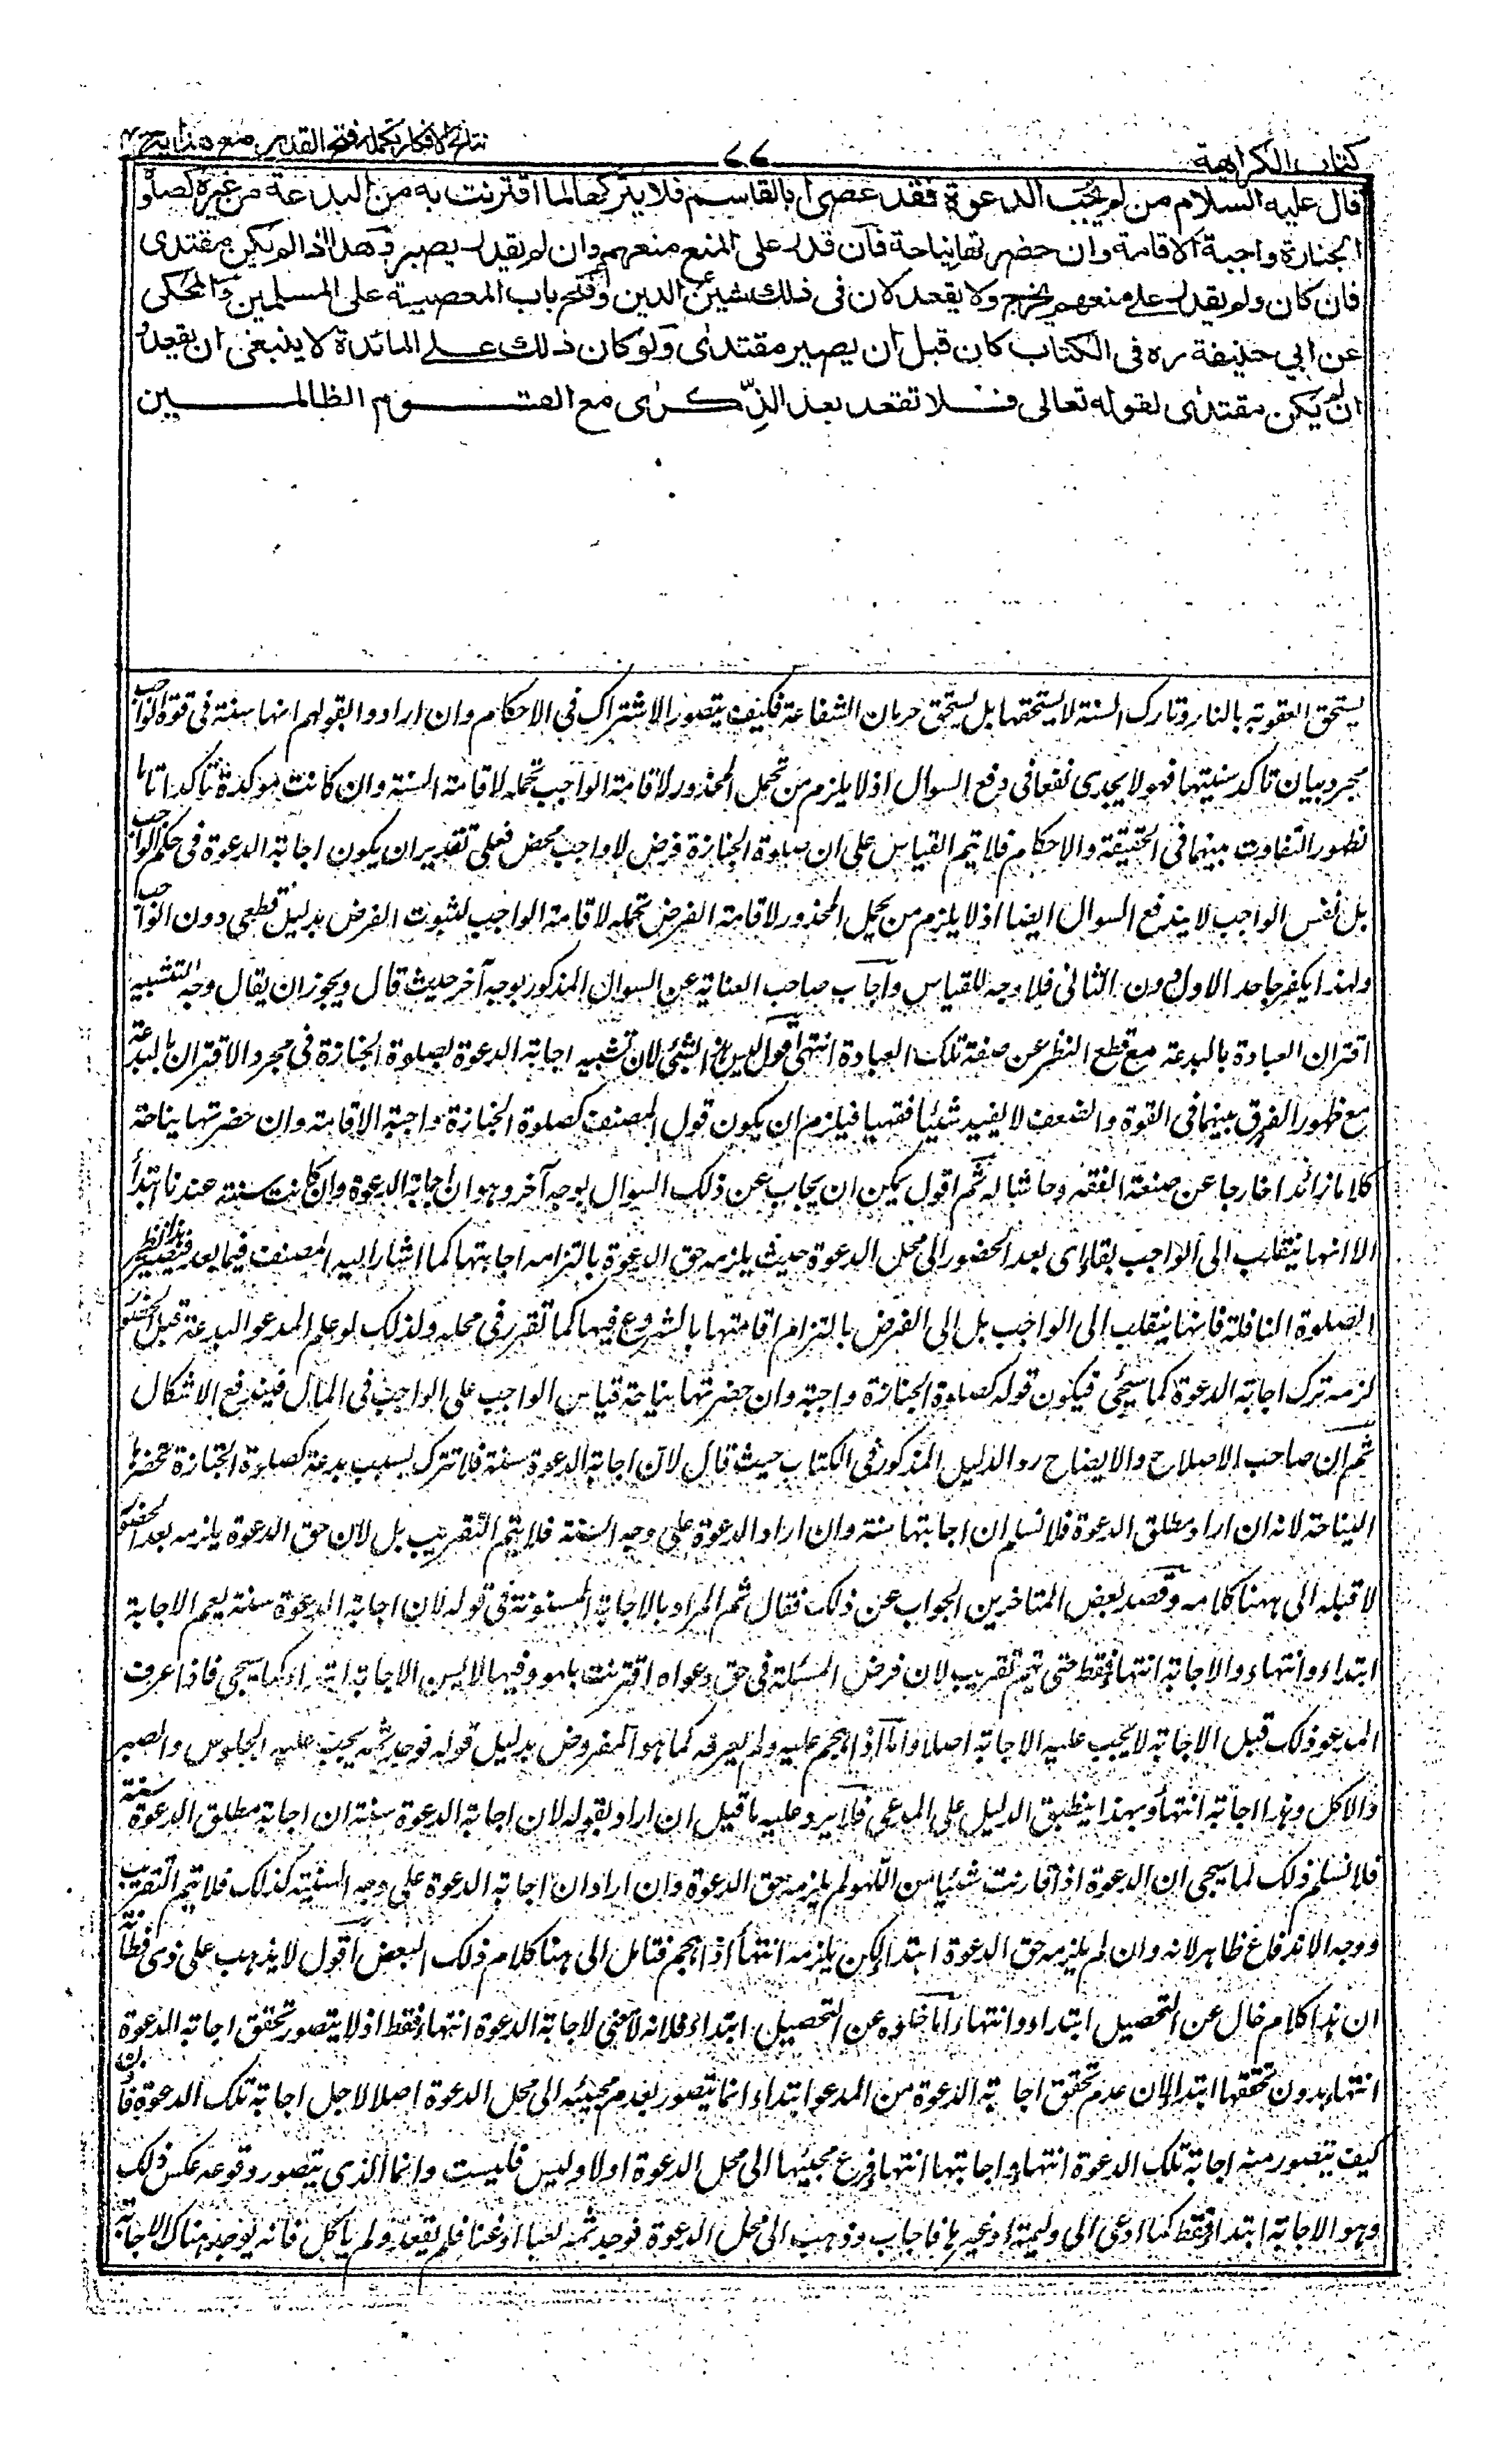 كتاب الكراهية
٧٧
نتائج الافكار تكملة فتح القدير مع هداية ج ٤
قال عليه السلام من لم يجب الدعوة فقد عصى ابا القاسم فلا يتركها لما اقترنت به من البدعة من غيره كصلوة
الجنازة واجبة الاقامة وان حضرتها نياحة فان قدر على المنع منعهم وان لم يقدر يصبر وهذا اذا لم يكن مقتدى
فان كان ولم يقدر على منعهم يخرج ولا يقعد لان في ذلك شين الدين وفتح باب المعصية على المسلمين والمحكى
عن ابي حنيفة ره في الكتاب كان قبل ان يصير مقتدى ولو كان ذلك على المائدة لا ينبغي ان يقعد و
ان لم يكن مقتدى لقوله تعالى فلا تقعد بعد الذكرى مع القوم الظالمين
يستحق العقوبة بالنار وتارك السنة لا يستحقها بل يستحق حرمان الشفاعة فكيف يتصور الاشتراك في الاحكام وان ارادوا بقولهم انها سنة في قوة الواجب
مجرد بيان تاكد سنيتها فهو لا يجدى نفعا في دفع السوال اذ لا يلزم من تحمل المحذور لاقامة الواجب تحمله لاقامة السنة وان كانت مؤكدة تأكدا تاما
لظهور التفاوت بينهما في الحقيقة والاحكام فلا يتم القياس على ان صلوة الجنازة فرض لا واجب محض فعلى تقدير ان يكون اجابة الدعوة في حكم الواجب
بل نفس الواجب لا يندفع السوال ايضا اذ لا يلزم من تحمل المحذور لاقامة الفرض تحمله لاقامة الواجب لثبوت الفرض بدليل قطعي دون الواجب
ولهذا يكفر جاحد الاول دون الثاني فلا وجه للقياس واجاب صاحب العناية عن السوال المذكور بوجه آخر حيث قال ويجوز ان يقال وجه التشبيه
اقتران العبادة بالبدعة مع قطع النظر عن صفة تلك العبادة انتهى اقول ليس هذا بشئ لان تشبيه اجابة الدعوة بصلوة الجنازة في مجرد الاقتران بالبدعة
مع ظهور الفرق بينهما في القوة والضعف لا يفيد شئيا فقهيا فيلزم ان يكون قول المصنف كصلوة الجنازة واجبة الاقامة وان حضرتها نياحة
كلاما زائدا خارجا عن صنعة الفقه وحاشا له ثم اقول يمكن ان يجاب عن ذلك السوال بوجه آخر وهو ان اجابة الدعوة وان كانت سنة عندنا ابتدأ
الا انها ينقلب الى الواجب بقاء اى بعد الحضور الى محل الدعوة حيث يلزمه حق الدعوة بالتزامه اجابتها كما اشار اليه المصنف فيما بعد فتصير هذا نظير
الصلوة النافلة فانها ينقلب الى الواجب بل الى الفرض بالتزام اقامتها بالشروع فيها كما تقرر في محله ولذلك لو علم المدعو البدعة قبل الحضور
لزمه ترك اجابة الدعوة كما سيجئ فيكون قوله كصلوة الجنازة واجبة وان حضرتها نياحة قياس الواجب على الواجب في المآل فيندفع الاشكال
ثم ان صاحب الاصلاح والايضاح رد الدليل المذكور في الكتاب حيث قال لان اجابة الدعوة سنة فلا تترك بسبب بدعة كصلوة الجنازة تحضرها
النياحة لانه ان اراد مطلق الدعوة فلا نسلم ان اجابتها سنة وان اراد الدعوة على وجه السنة فلا يتم التقريب بل لان حق الدعوة يلزمه بعد الحضور
لا قبله الى ههنا كلامه وقصد بعض المتاخرين الجواب عن ذلك فقال ثم المراد بالاجابة المسنونة في قوله لان اجابة الدعوة سنة يعم الاجابة
ابتداء وانتهاء والاجابة انتهاء فقط حتى يتم التقريب لان فرض المسئلة في حق دعوة اقترنت بلهو وفيها ليس الاجابة ابتداء كما سيجى فاذا عرف
المدعو ذلك قبل الاجابة لا يجب عليه الاجابة اصلا واما اذا هجم عليه ولم يعرفه كما هو المفروض بدليل قوله فوجد ثمه يجب عليه الجلوس والصبر
والاكل وهذا اجابة انتهاء وبهذا ينطبق الدليل على المدعى فلا يرد عليه ما قيل ان اراد بقوله لان اجابة الدعوة سنة ان اجابة مطلق الدعوة سنة
فلا نسلم ذلك لما سيجى ان الدعوة اذا قارنت شئيا من اللهو لم يلزمه حق الدعوة وان اراد ان اجابة الدعوة على وجه السنة كذلك فلا يتم التقريب
ووجه الاندفاع ظاهر لانه وان لم يلزمه حق الدعوة ابتداء لكن يلزمه انتهاء اذا هجم فتامل الى هنا كلام ذلك البعض اقول لا يذهب على ذى فطانة
ان هذا كلام خال عن التحصيل ابتداء وانتهاء اما خلوه عن التحصيل ابتداء فلانه لا معنى لاجابة الدعوة انتهاء فقط اذ لا يتصور تحقق اجابة الدعوة
انتهاء بدون تحققها ابتداء لان عدم تحقق اجابة الدعوة من المدعو ابتداء انما يتصور بعدم مجيئه الى محل الدعوة اصلا لاجل اجابة تلك الدعوة فاذن
كيف يتصور منه اجابة تلك الدعوة انتهاء واجابتها انتهاء فرع مجيئها الى محل الدعوة اولا وليس فليست وانما الذى يتصور وقوعه عكس ذلك
وهو الاجابة ابتداء فقط كما اذا دعى الى وليمة او غيرها فاجاب وذهب الى محل الدعوة فوجد ثمه لعبا او غنا فلم يقعد ولم ياكل فانه يوجد هناك الاجابة